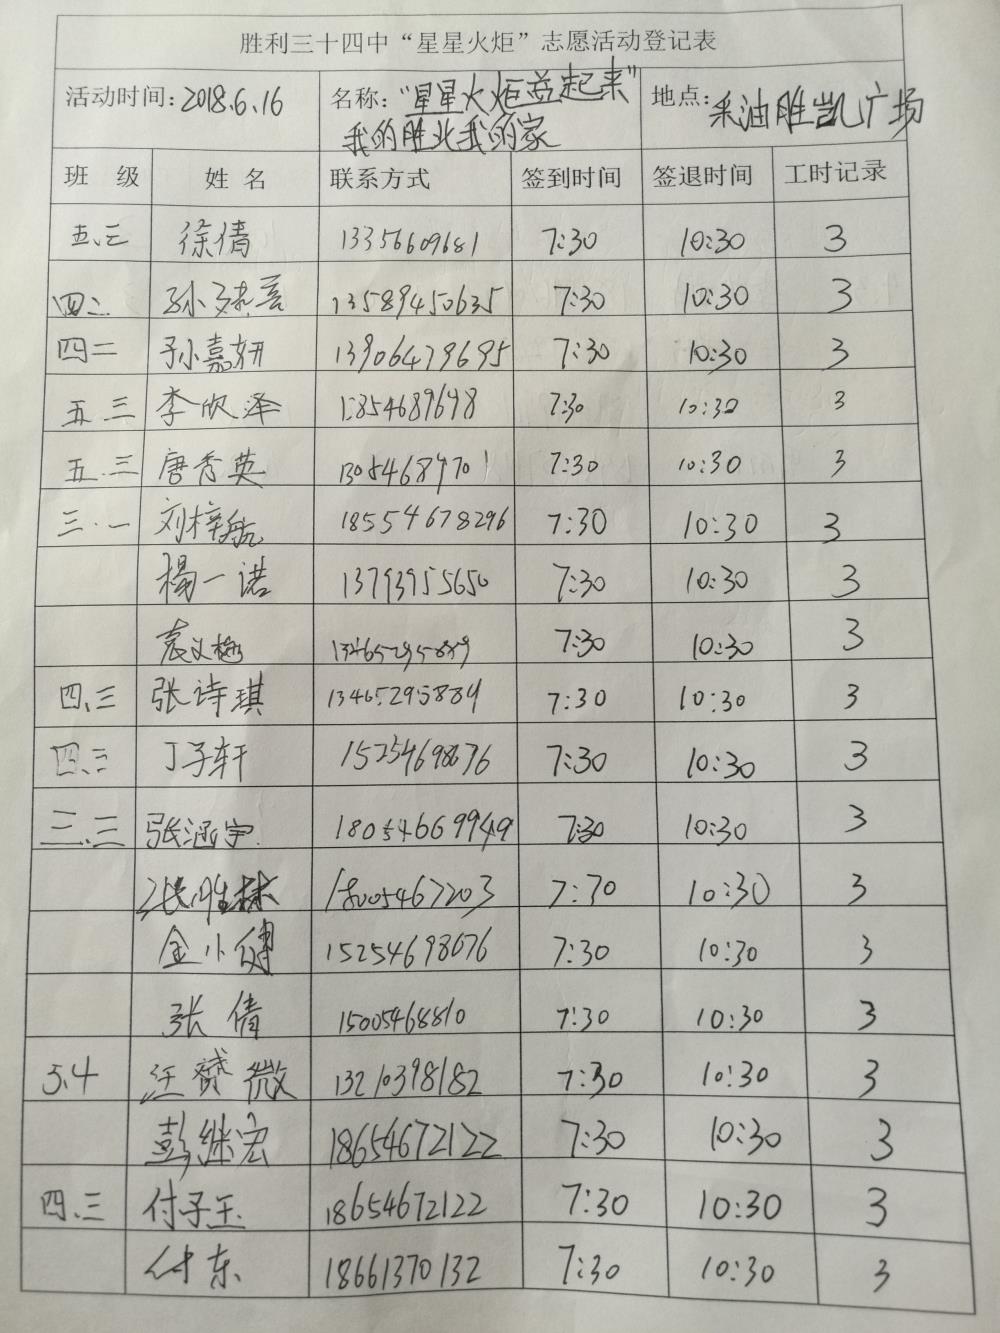 胜利三十四中“星星火炬”志愿活动登记表
活动时间:2018.6.16 名称:“星星火炬益起来” 地点:采油胜凯广场
我的胜北我的家
班 级 姓 名 联系方式 签到时间 签退时间 工时记录
五.三 徐倩 13356609681 7:30 10:30 3
四.二 孙 13589450635 7:30 10:30 3
四二 孙嘉妍 13906479695 7:30 10:30 3
五 三 李欣泽 7:30 10:30 3
五.三 唐秀英 7:30 10:30 3
三.一 刘梓航 18554678296 7:30 10:30 3
楊一诺 13793955650 7:30 10:30 3
袁义梅 7:30 10:30 3
四、三 张诗琪 13465295889 7:30 10:30 3
四.三 丁子轩 15254698676 7:30 10:30 3
三.三 张涵宇 18054669949 7:30 10:30 3
张胜林 18005467203 7:30 10:30 3
金小健 15254698676 7:30 10:30 3
张倩 15005468810 7:30 10:30 3
5.4 汪赟薇 13210398182 7:30 10:30 3
彭继宏 18654672122 7:30 10:30 3
四.三 付子玉 18654672122 7:30 10:30 3
付东 18661370132 7:30 10:30 3